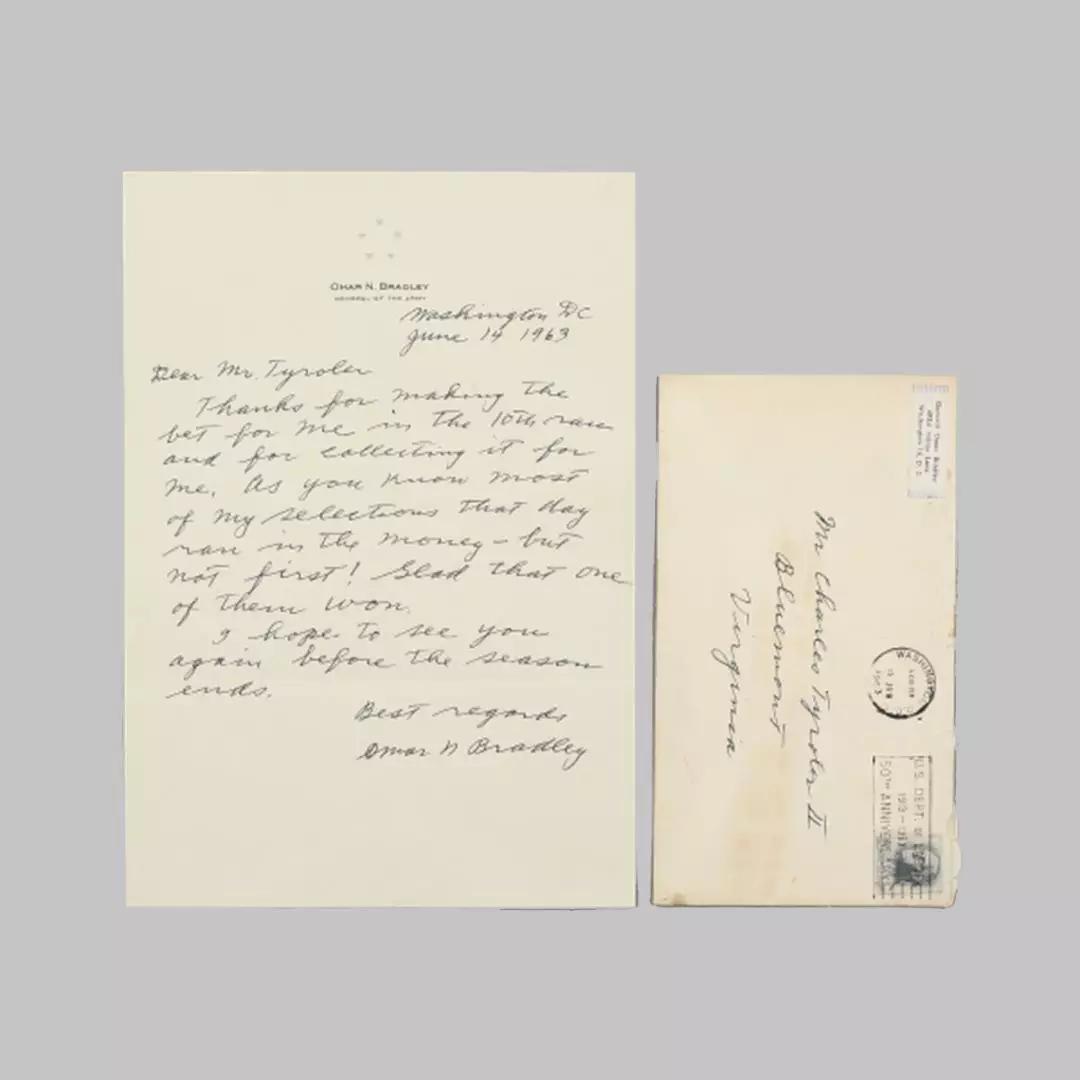 OMAR N. BRADLEY
GENERAL OF THE ARMY
Washington DC
June 14 1963
Dear Mr. Tyroler
Thanks for making the
bet for me in the 10th race
and for collecting it for
me. As you know most
of my selections that day
ran in the money - but
not first! Glad that one
of them won.
I hope to see you
again before the season
ends.
Best regards
Omar N Bradley
General Omar Bradley
Washington 16, D. C.
Mr Charles Tyroler II
Bluemont
Virginia
WASHINGTON
1963
U.S. DEPT. OF
1913-1963
50TH ANNIVERSARY